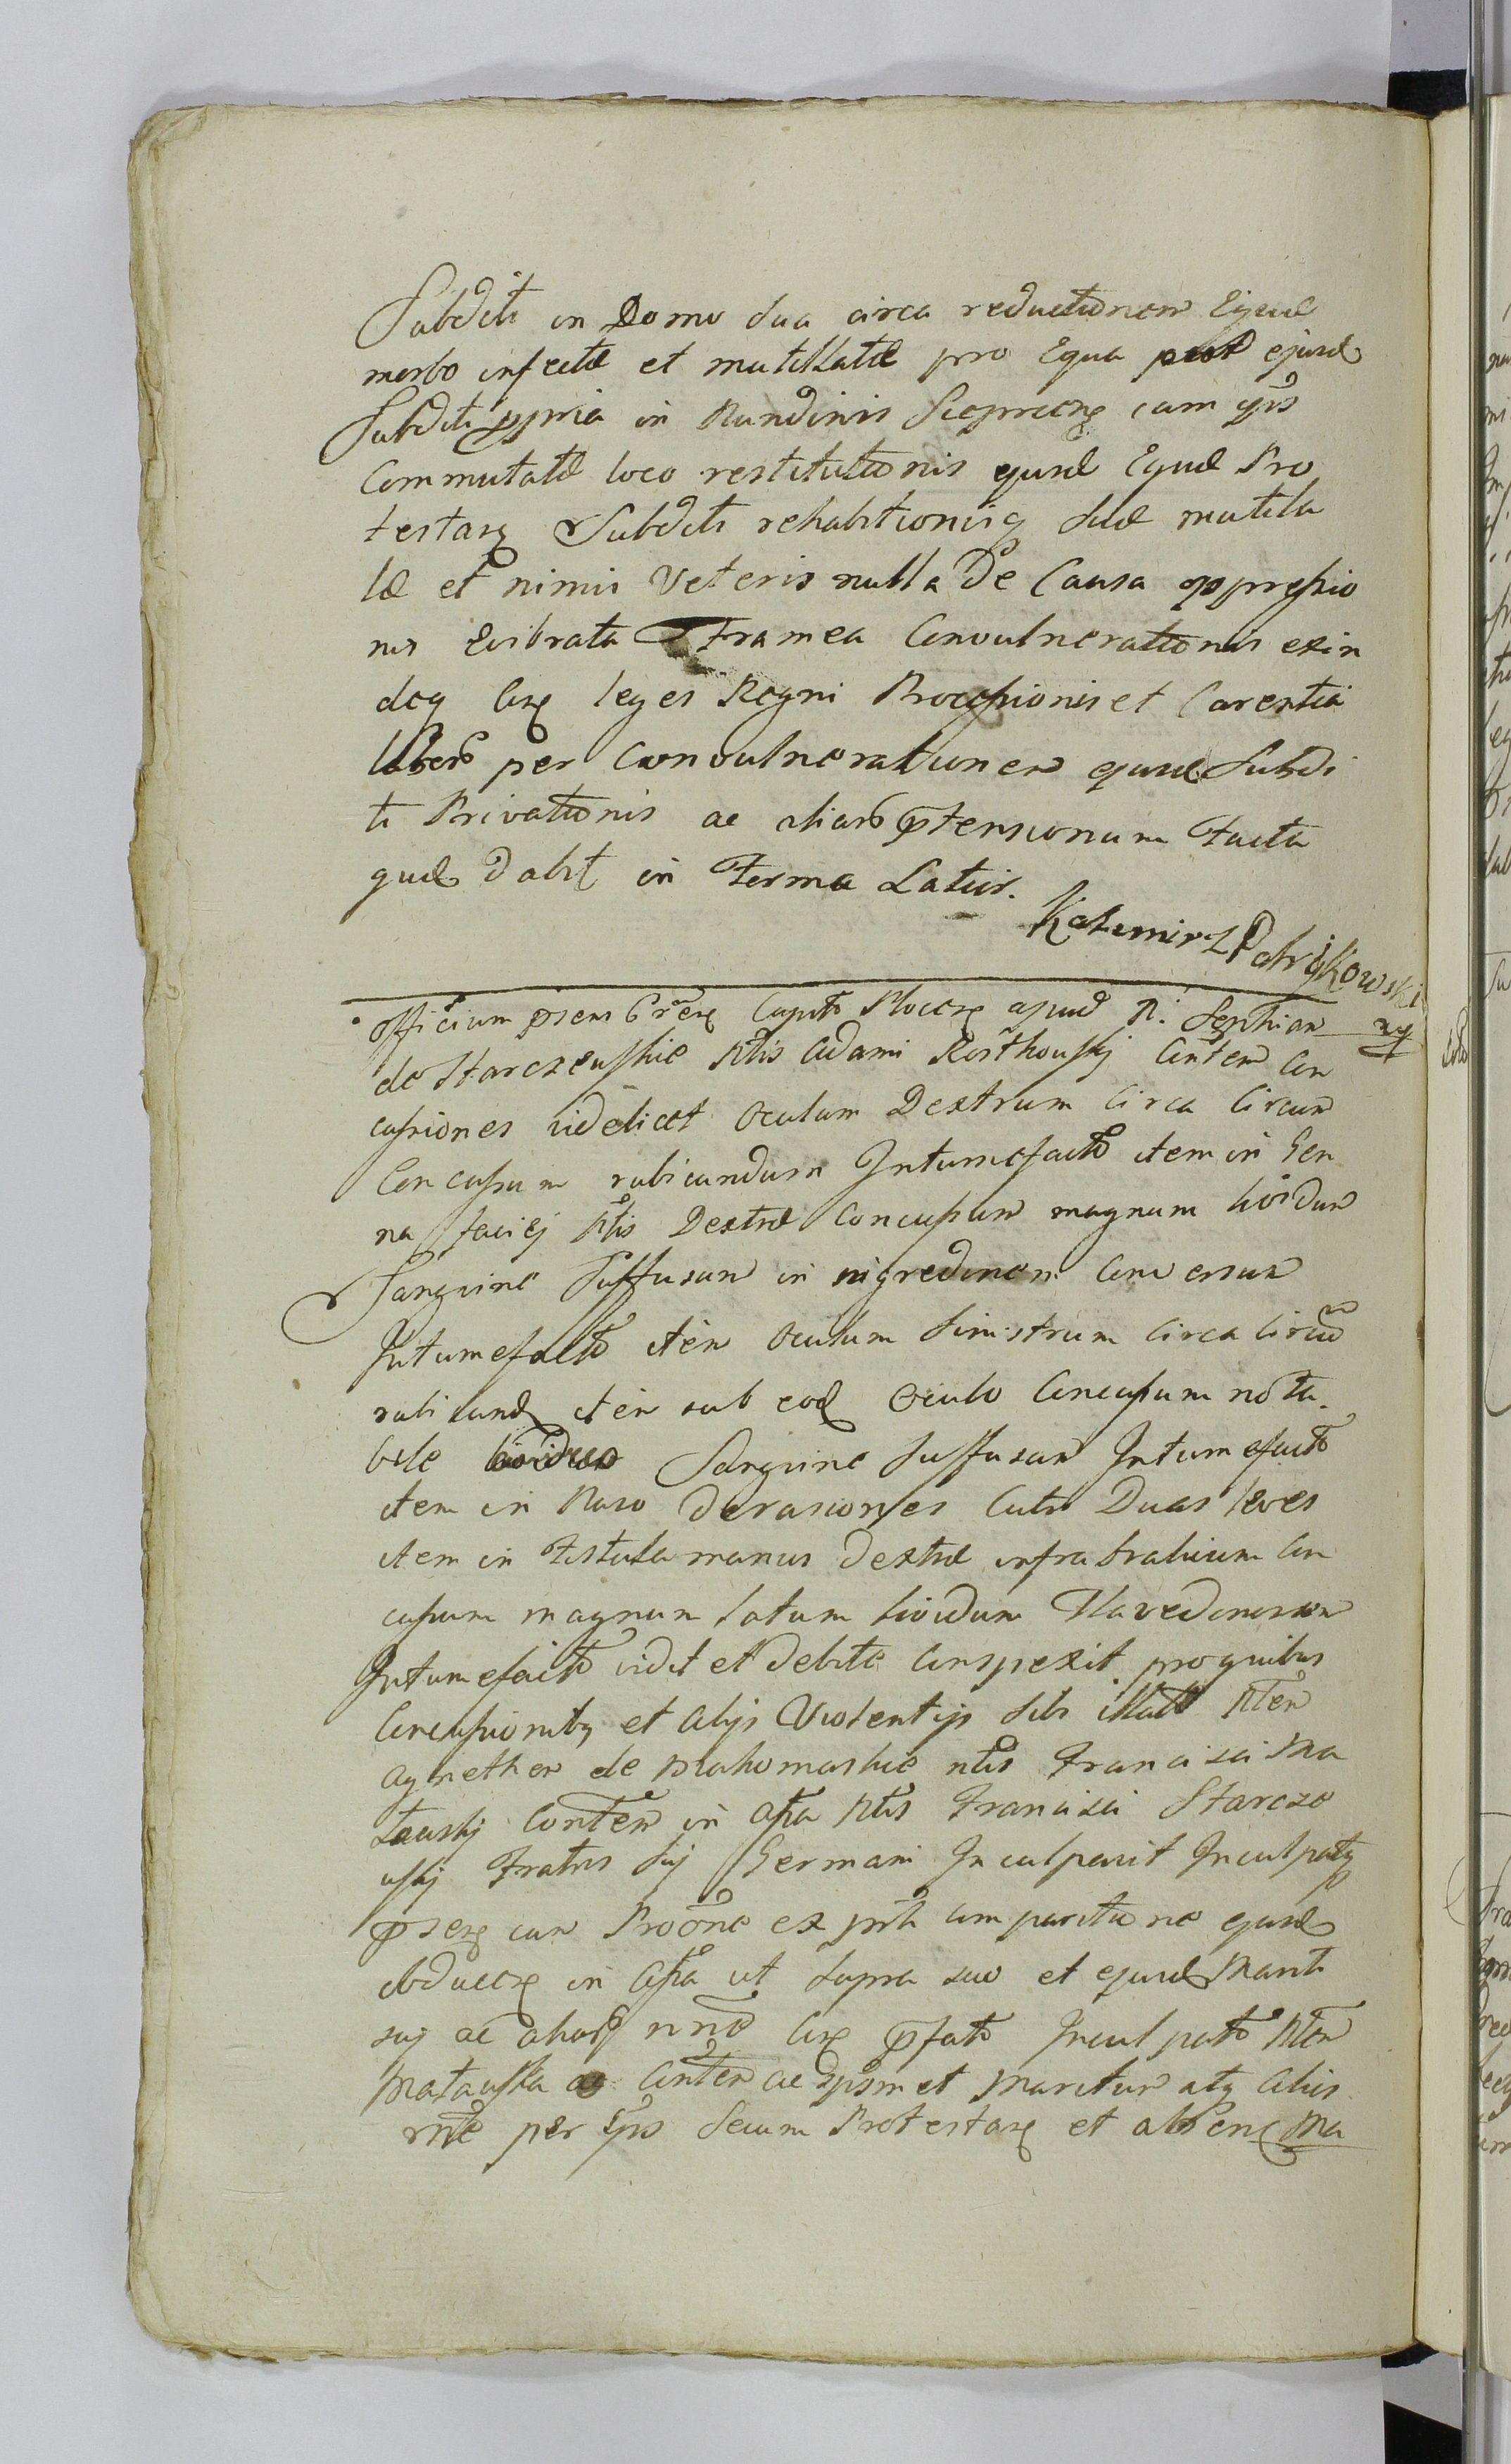 Subditi in Domo sua circa reductionem Equæ
morbo infectæ et mutillatæ pro Equa ejusd
Subditi ppria in Nundinis cum ipso
Commutatæ loco restitutionis ejusd Equæ Pro
testan Subditi rehabitionisq suæ mutila
tæ et nimis Veteris nulla de Causa oppressio
nis Evibrata Framea Convulnerationis exin
deq Cire leges Regni Processionis et Carentia
labero per Convulnerationem ejusd Subdi
ti Privationis ac aliaro ptensionum Facta
quæ dabit in Termo Latius.
Kazimirz PatrijKowski
mp
Officium psens Crense Captle Plocen apud N. Sophian
de Starczewskie Ntis Adami Rostkouskj Conten Con
cussiones videlicet Oculum Dextrum Circa Circum
Concussum rubicundum Intumefacto item in Gen
na faciej Ntis Dextræ Concussum magnum lividum
Sanguine Suffusum in nigredinem Conversum
Intumefacto item Oculum Sinistrum Circa Circum
rubicund item sub eod Oculo Concussum nota
bile lividum Sanguine Suffusum Intumefacto
item in Naso Derasiones Cutis Duas leves
item in Fistula manus dextræ infra brahium Con
cussum magnum latum lividum Flavedinosum
Intumefacto vidit et debite Conspexit pro quibus
Concussionibq et Alijs Violentijs Sibi illato Nten
Agnethen de Makomaskie ntis Francisci Ma
Conten in Assa Ntis Francisci Starcze
uskj Fratris Suj Germani Inculpavit Inculpatq
psen cum Proone ex prt Comparitione ejusd
obducen in Assa ut Supra suo et ejusd Marit
suj ac alioru nne Cire pfato Inculpato Nten
Matauska Conten ac ipsmet Maritum atq Alios
rne per ipso Secum Protestan et absen Ma